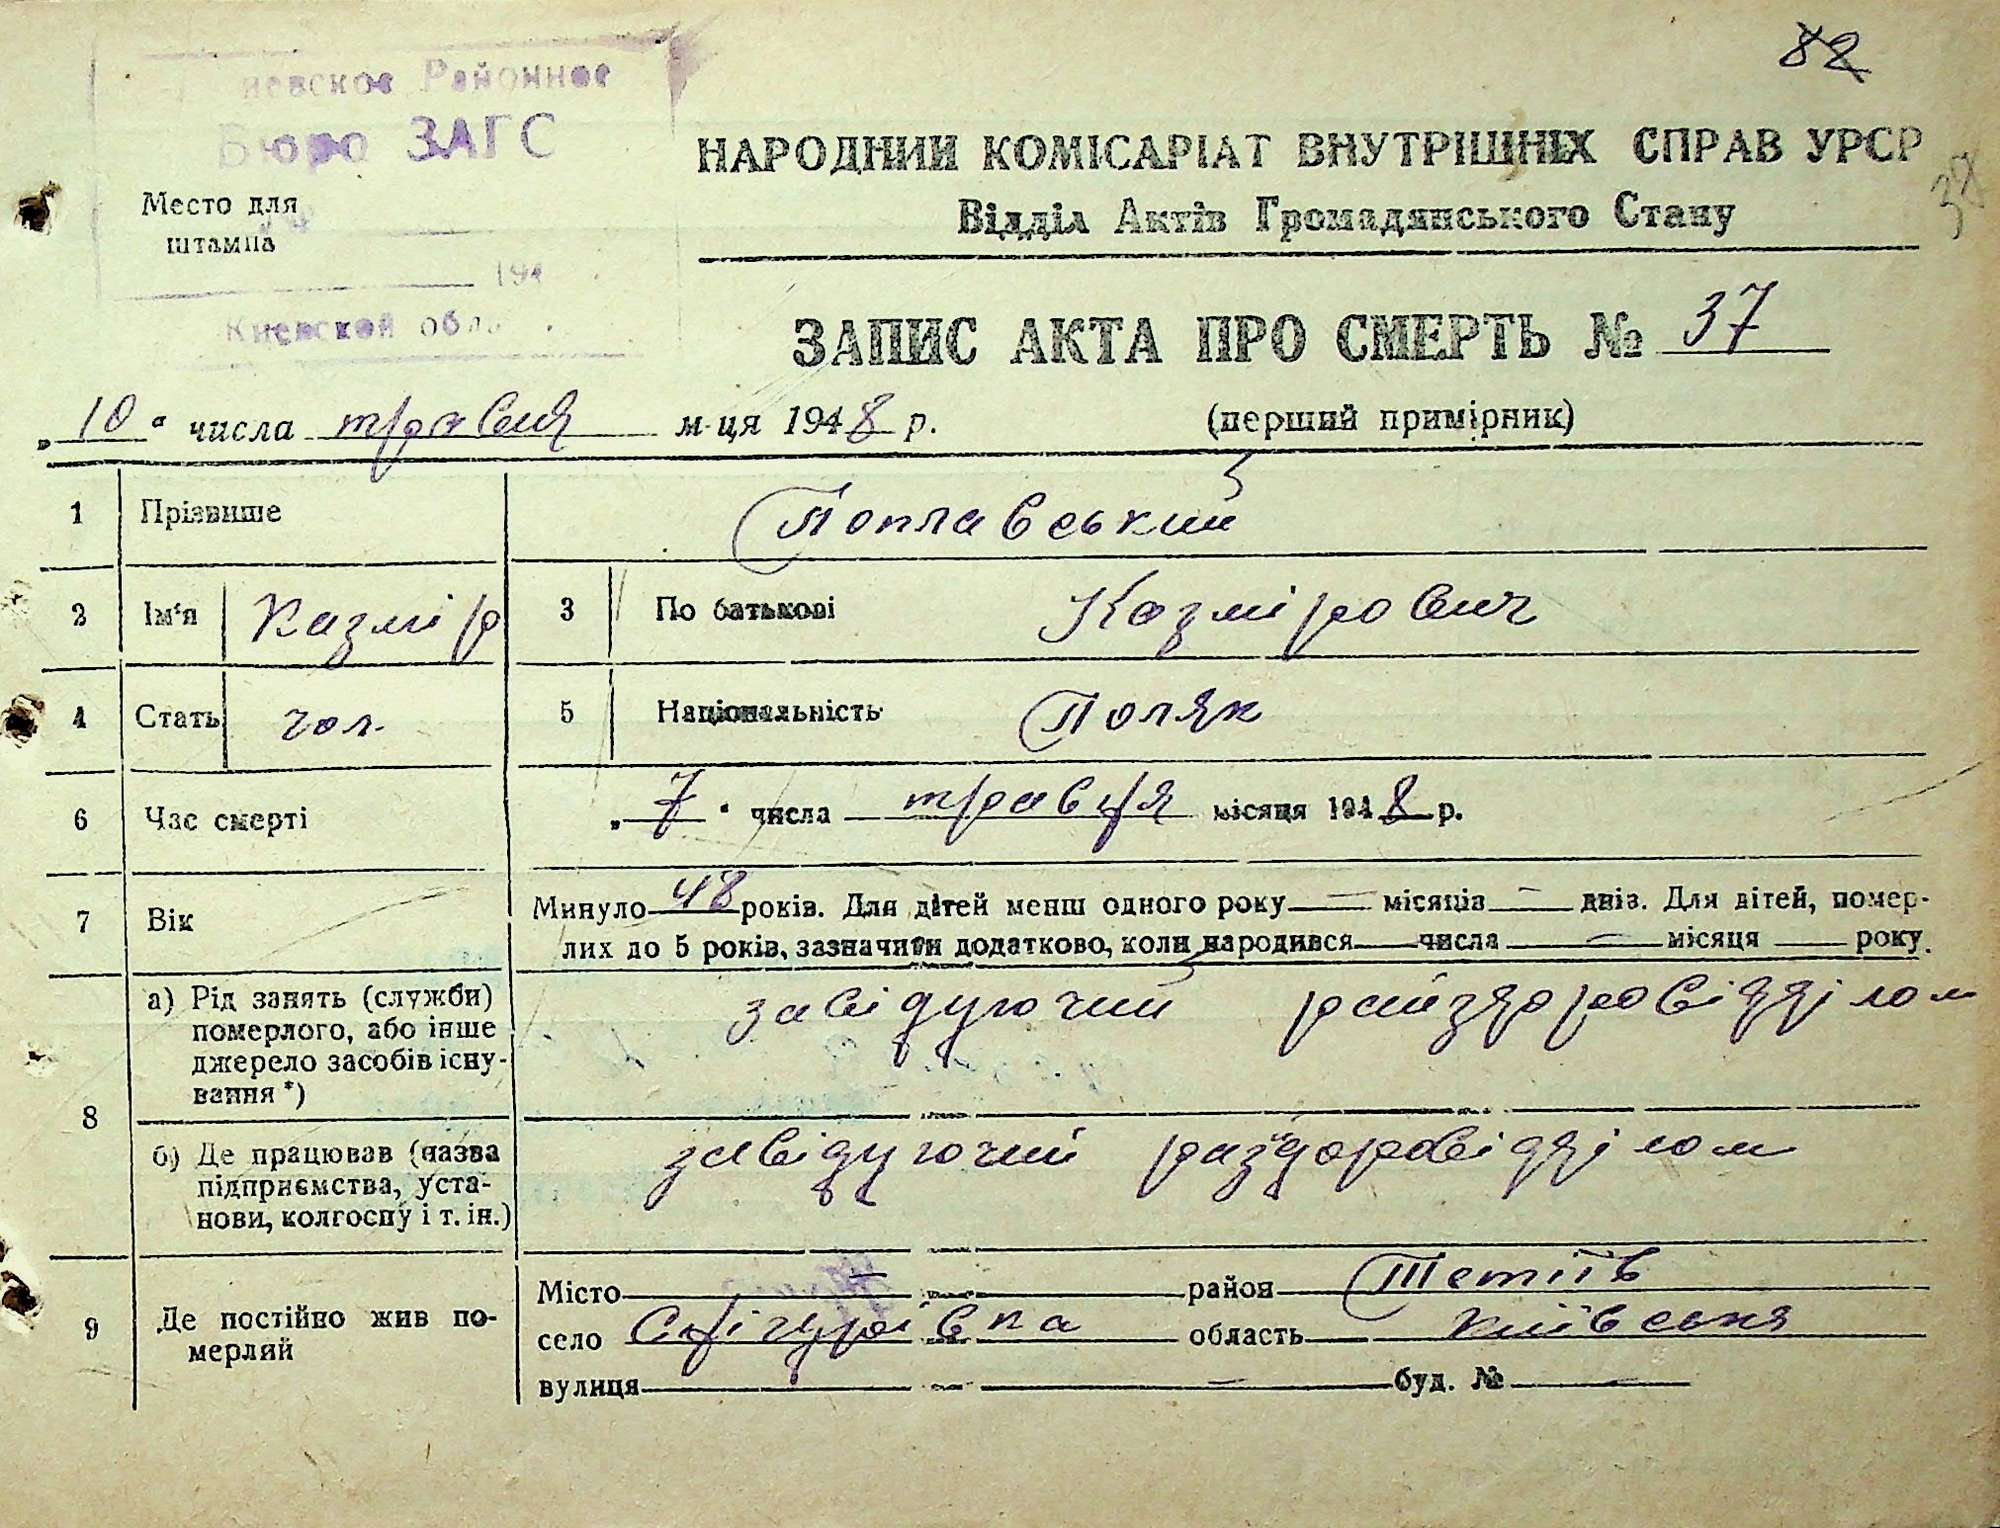 82
иевское Районное
Бюро ЗАГС
Место для
штампа
194
Киевской обл
НАРОДНИЙ КОМІСАРІАТ ВНУТРІШНІХ СПРАВ УРСР
38
Відділ Актів Громадянського Стану
ЗАПИС АКТА ПРО СМЕРТЬ № 37
„10“ числа травня м-ця 1948 р. (перший примірник)
1 Прізвище Поплавський
2 Ім'я Казмір 3 По батькові Казмірович
4 Стать чол. 5 Національність Поляк
6 Час смерті „7“ числа травця місяця 1948 р.
7 Вік Минуло 48 років. Для дітей менш одного року — місяців — днів. Для дітей, помер-
лих до 5 років, зазначити додатково, коли народився — числа — місяця — року.
8 а) Рід занять (служби)
померлого, або інше
джерело засобів існу-
вання *)
завідуючий райздоровідділом
б) Де працював (назва
підприємства, уста-
нови, колгоспу і т. ін.)
завідуючий райздоровідділом
9 Де постійно жив по-
мерлий
Місто — район Тетіїв
село область Київська
вулиця — буд. № —